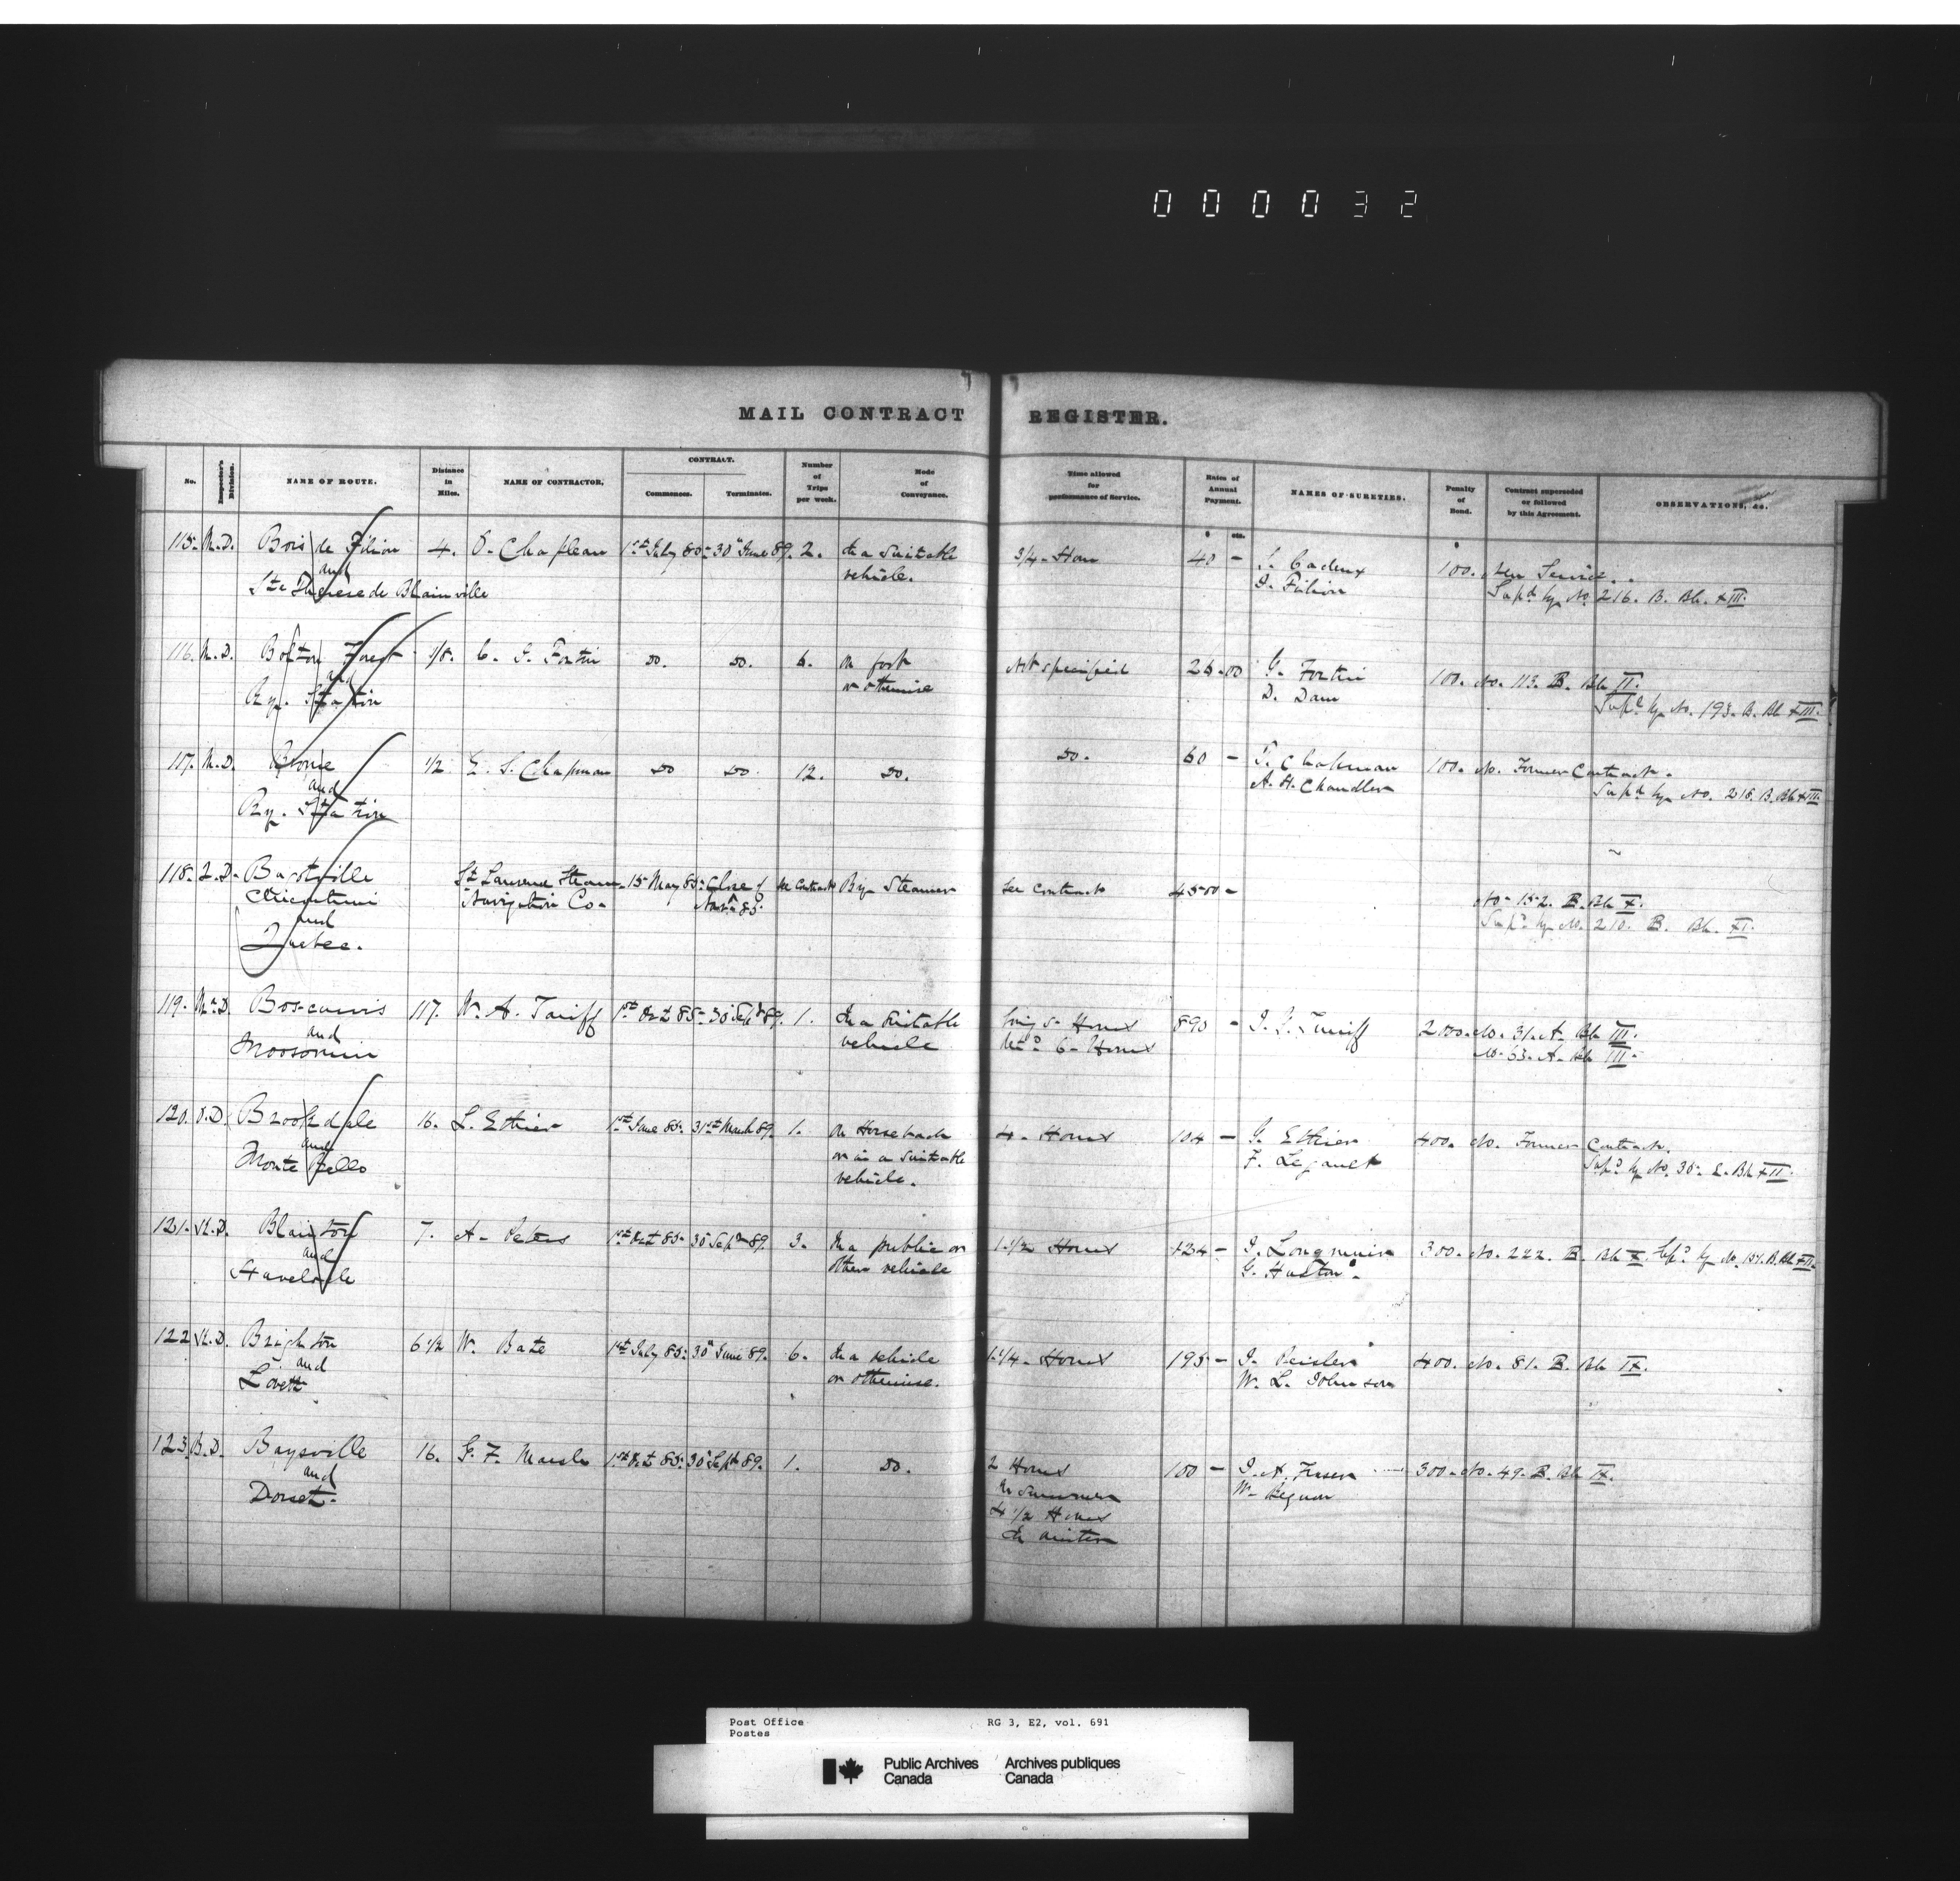 000032
7 7
MAIL CONTRACT REGISTER.
No. Inspector's Division. NAME OF ROUTE. Distance in Miles. NAME OF CONTRACTOR. CONTRACT. Commences. Terminates. Number of Trips per week. Mode of Conveyance. Time allowed for performance of Service. Rates of Annual Payment. NAMES OF SURETIES. Penalty of Bond. Contract superseded or followed by this Agreement. OBSERVATIONS, &c.
$ cts. $
115. M.D. Bois de Filion 4. O. Chapleau 1st July 85. 30th June 89. 2. In a suitable 3/4 Hour 40 - Filion 100. New Service.
and vehicle. Supd by No 216. B. Bk XIII
Ste Therese de Blainville
116. M.D. Bolton Forest 1/8. C. Fortin Do. Do. 6. On foot Not specified 26.00 G. Fortin 100. No. 113. B. Bk II.
and or otherwise D. Dam Supd by No. 193. B. Bk XIII
Ry. Station
117. M.D. Brome 1/2 E. S. Chapman Do Do. 12. Do. Do. 60 - Chapman 100. No. Former Contract.
and A. H. Chandler Supd by No. 218. B. Bk XIII
Ry. Station
118. Q.D. Bagotville St Lawrence Steam 15 May 85. Close of See Contract By Steamer See Contract 4500 -
Chicoutimi Navigation Co. Navn 85. No. 152. B. Bk X.
and Supd by No. 210. B. Bk. XI.
Quebec.
119. Ma.D. Boscurvis 117. W. A. Turiff 1st Oct 85. 30 Sept 89. 1. In a suitable 5 Hours 890 - Turriff No. 31. A. Bk III.
and vehicle 6 Hours No. 63. A. Bk III.
Moosomin
120. O.D. Brookdale 16. L. Ethier 1st June 85. 31st March 89. 1. On Horseback 4. Hours 104 - G. Ethier 400. No. Former Contract.
and or in a suitable F. Legault Supd by No. 35. Bk XII
Monte Bello vehicle.
121. K.D. Blairton 7. A. Peters 1st Oct 85. 30 Sept 89. 3. In a public or 1 1/2 Hours 124 - J. Longmuir 300. No. 222. B. Bk X. Supd by No. B. Bk XII
and other vehicle G. Huston.
Havelock
122 K.D. Brighton 6 1/2 W. Bate 1st July 85. 30th June 89. 6. In a vehicle 1 1/4 Hours 195 - 400. No. 81. B. Bk IX.
and or otherwise. W. L. Johnson
Lovett
123. B.D. Baysville 16. G. F. Marsh 1st Oct 85. 30 Sept 89. 1. Do. 2 Hours 100 - J. A. Fraser 300. No. 49. B. Bk IX.
and in summer
Dorset. 4 1/2 Hours
in winter
Post Office RG 3, E2, vol. 691
Postes
Public Archives Archives publiques
Canada Canada